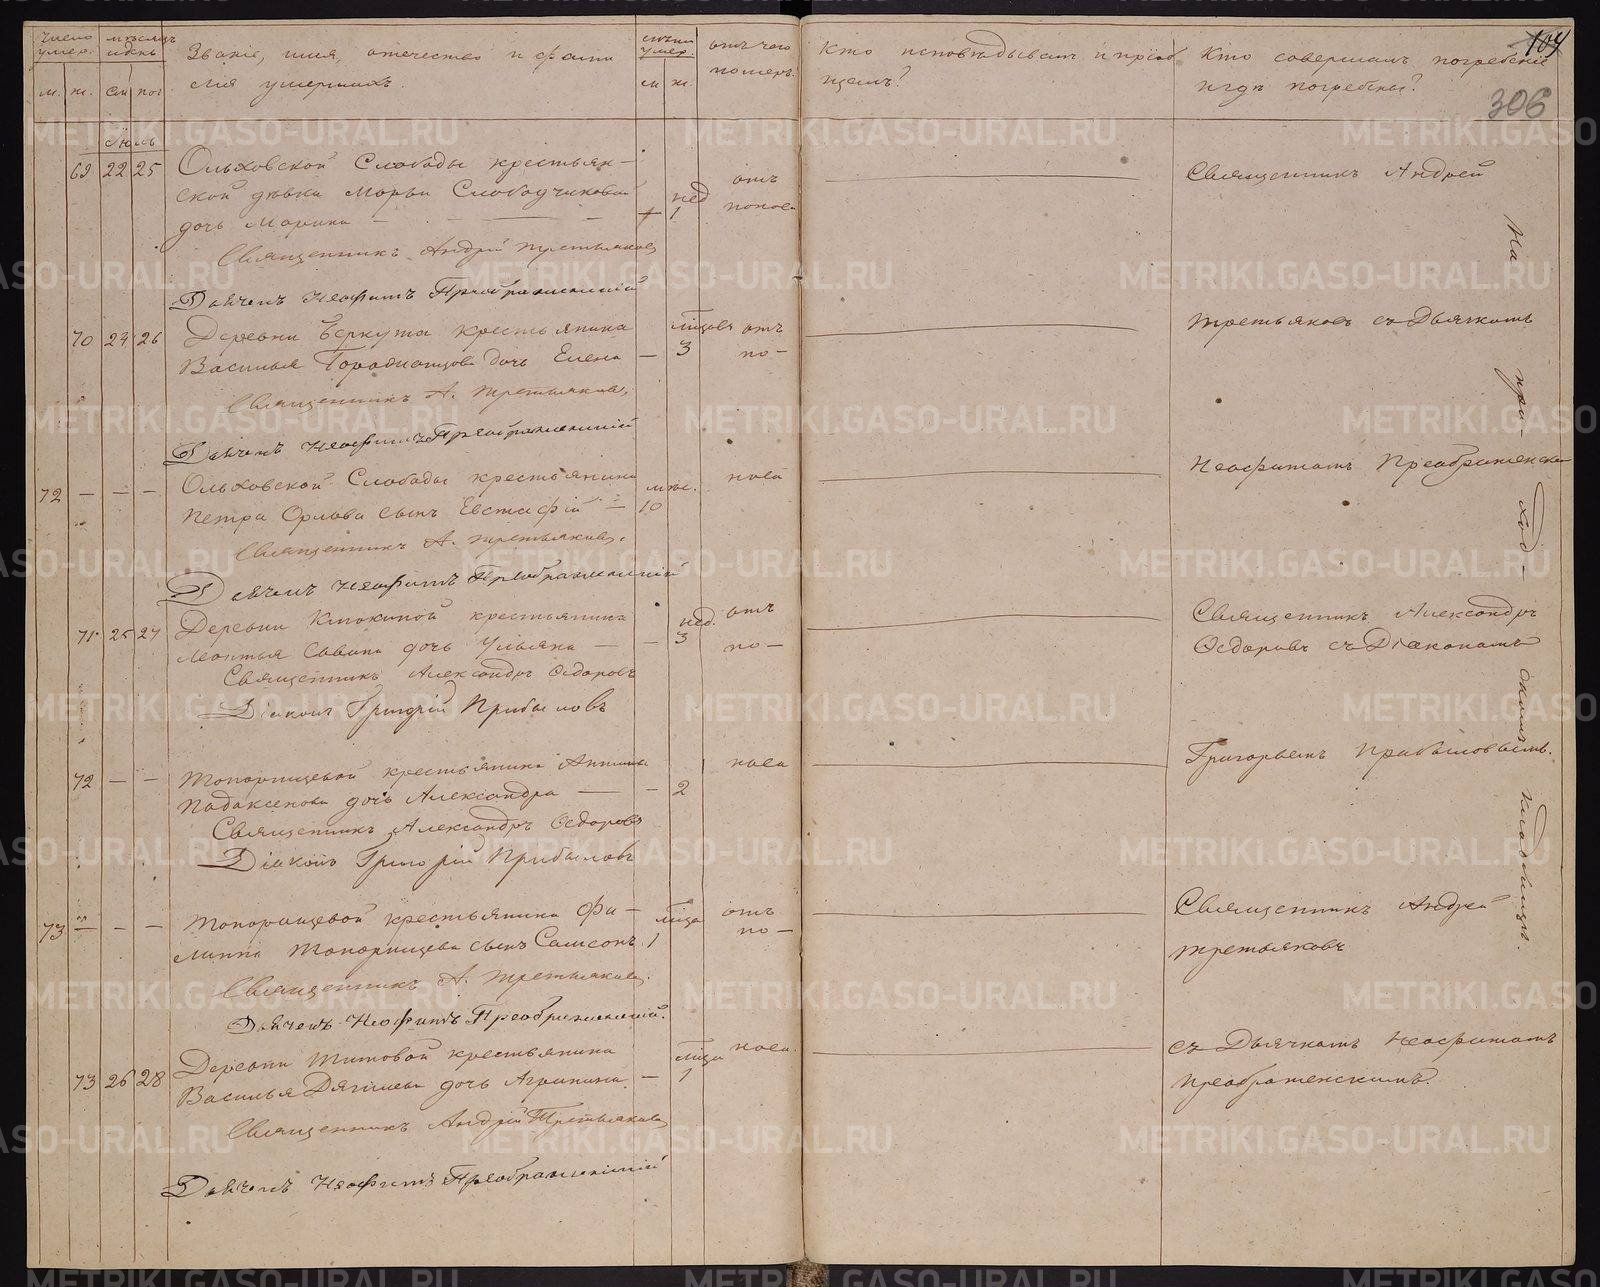 Число умер.
мѣсяцъ и день
Званіе, имя, отечество и фами
лія умершихъ.
лѣта умер.
отъ чего
померъ.
Кто исповѣдывалъ и пріоб
щалъ?
Кто совершалъ погребеніе
и гдѣ погребены?
104
306
м. ж. см пог м ж.
Іюль
69 22 25 Ольховской Слободы крестьян-
ской дѣвки Марьи Слободчиковой
дочь Марина — нед 1 отъ поноса
Священникъ Андрей Третьяковъ
Дьячекъ Неофитъ Преображенскій
70 24 26 Деревни Беркута крестьянина
Василья дочь Елена — 3 отъ
по-
Священникъ А. Третьяковъ.
Дьячекъ Неофитъ Преображенскій
72 — — — Ольховской Слободы крестьянина
Петра Орлова сынъ Евстафій — мѣс. 10 носа
Священникъ А. Третьяковъ.
Дьячекъ Неофитъ Преображенскій
71. 25 27 Деревни крестьянина
Савина дочь Ульяна — нед. 3 отъ
по-
Священникъ Александръ Ѳедоровъ
Діаконъ Григорій Прибыловъ
72 — — Топорищевой крестьянина
дочь Александра — 2 носа
Священникъ Александръ Ѳедоровъ
Діаконъ Григорій Прибыловъ
73 — — — Топорищевой крестьянина Фи-
липпа Топорищева сынъ Самсонъ 1 отъ
по-
Священникъ А. Третьяковъ.
Дьячекъ Неофитъ Преображенскій.
73 26 28 Деревни Титовой крестьянина
Василья дочь Агрипина — 1 носа.
Священникъ Андрей Третьяковъ
Дьячекъ Неофитъ Преображенскій
Священникъ Андрей
Третьяковъ съ Дьячкомъ
Неофитомъ Преображенски
Священникъ Александръ
Ѳедоровъ съ Діакономъ
Григорьемъ Прибыловымъ.
Священникъ Андрей
Третьяковъ
съ Дьячкомъ Неофитомъ
Преображенскимъ.
На при-ход-скомъ кладбищѣ.
METRIKI.GASO-URAL.RU